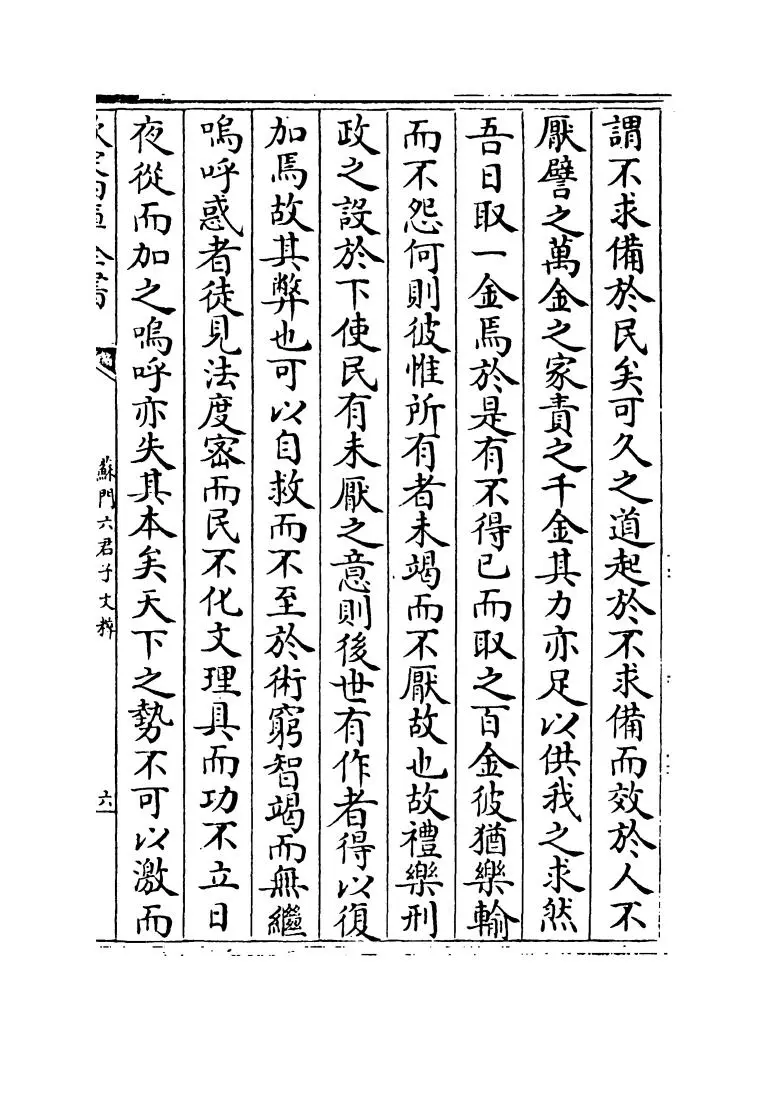 謂不求備於民矣可久之道起於不求備而效於人不
厭譬之萬金之家責之千金其力亦足以供我之求然
吾日取一金焉於是有不得已而取之百金彼猶樂輸
而不怨何則彼惟所有者未竭而不厭故也故禮樂刑
政之設於下使民有未厭之意則後世有作者得以復
加焉故其弊也可以自救而不至於術窮智竭而無繼
嗚呼惑者徒見法度密而民不化文理具而功不立日
夜從而加之嗚呼亦失其本矣天下之勢不可以激而
全書
蘇門六君子文粹
六